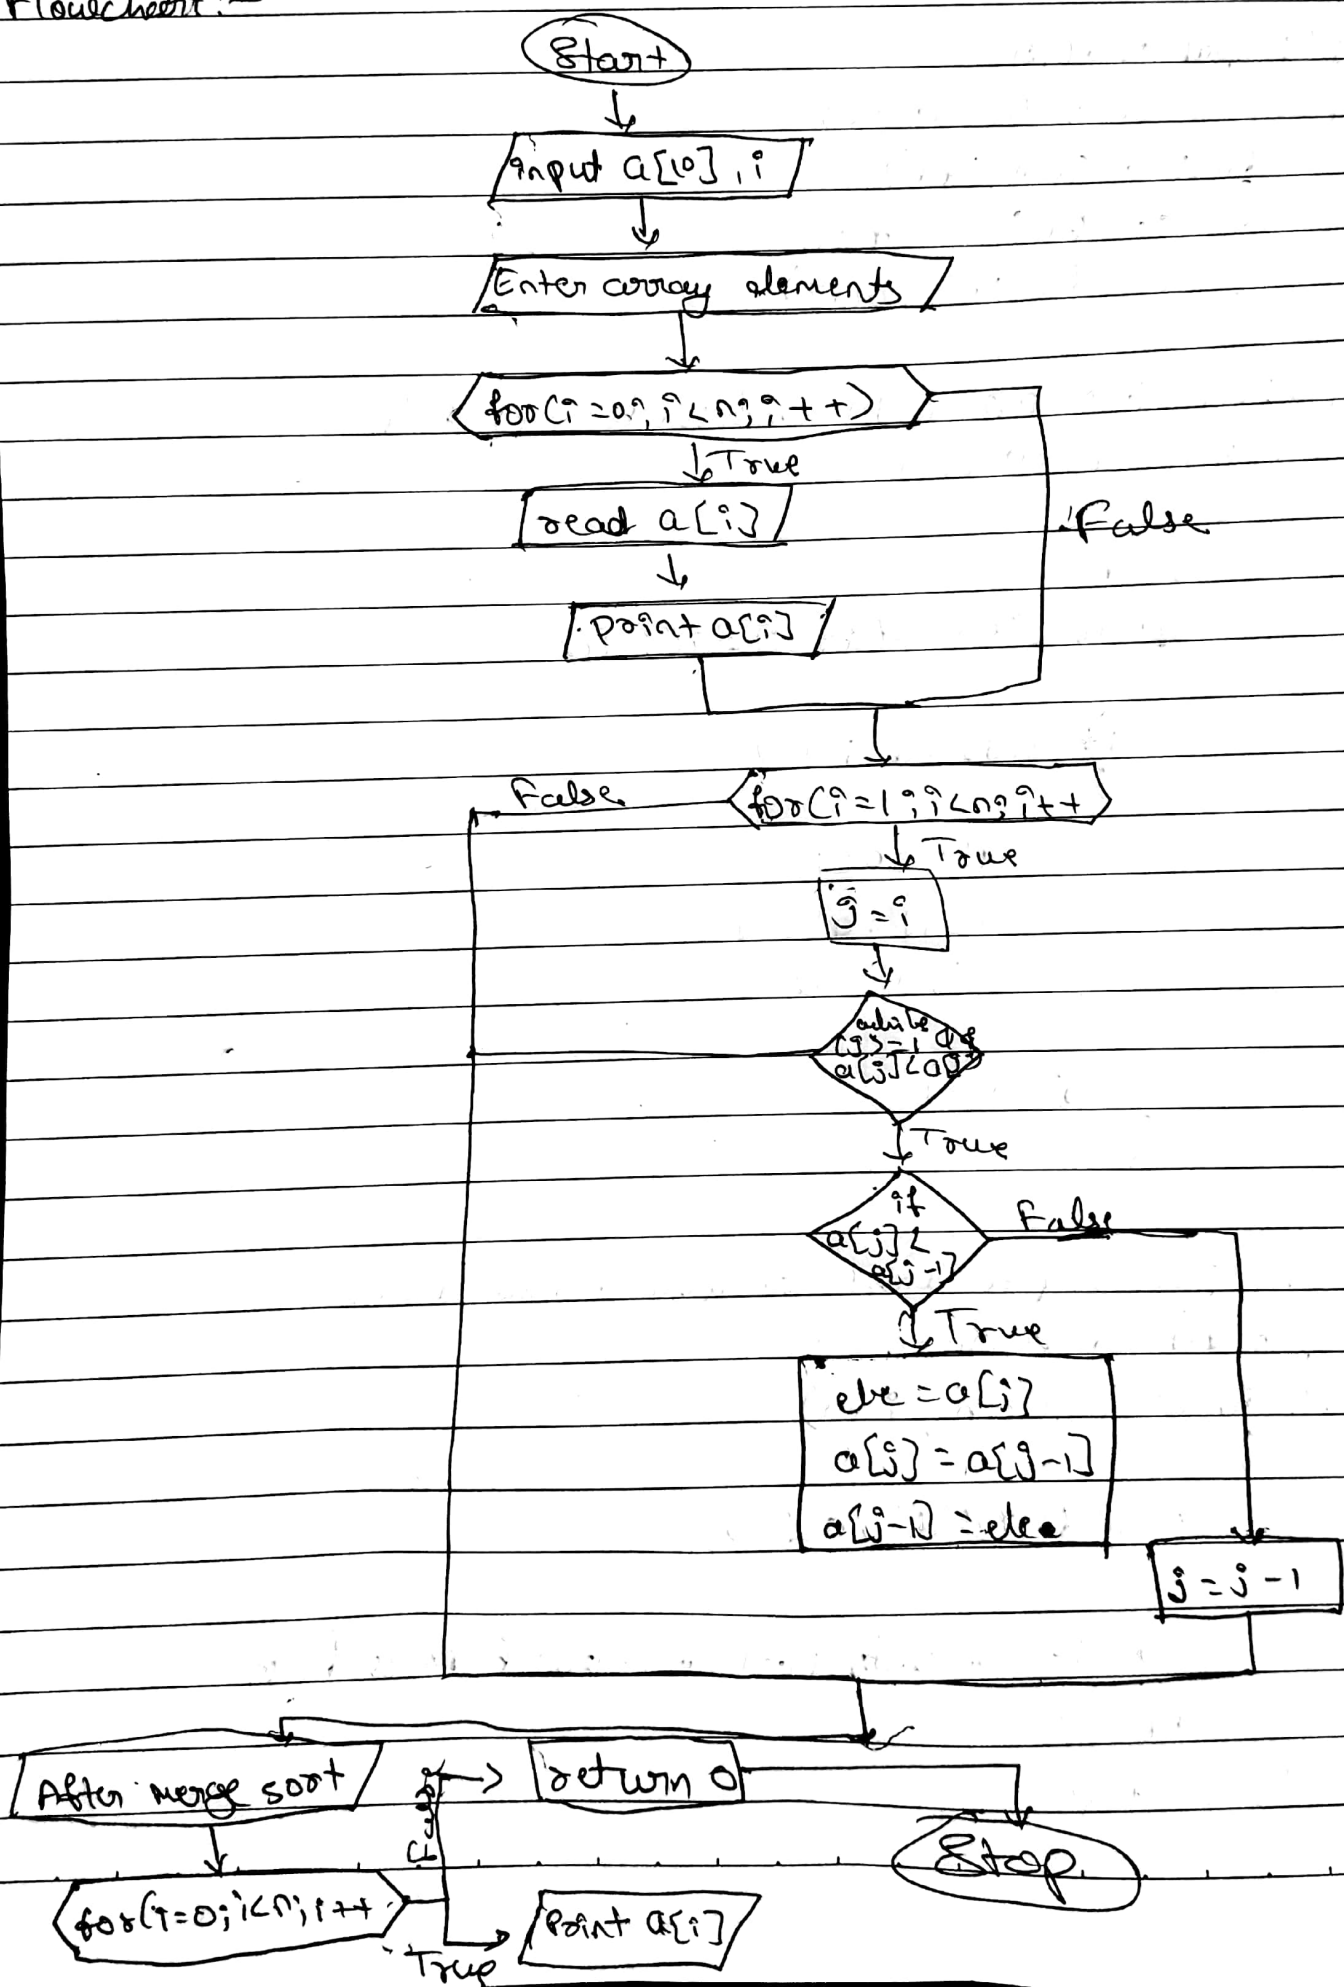 Flowchart:-
Start
input a[10], i
Enter array elements
for(i=0; i<n; i++)
True
read a[i]
False
print a[i]
False
for(i=1; i<n; i++
True
j=i
while
(j>=1 &&
a[j]<a[j]
True
if
a[j]<
a[j-1]
False
True
ele = a[j]
a[j] = a[j-1]
a[j-1] = ele
j=j-1
After merge sort
False
return 0
Stop
for(i=0; i<n; i++
True
Print a[i]